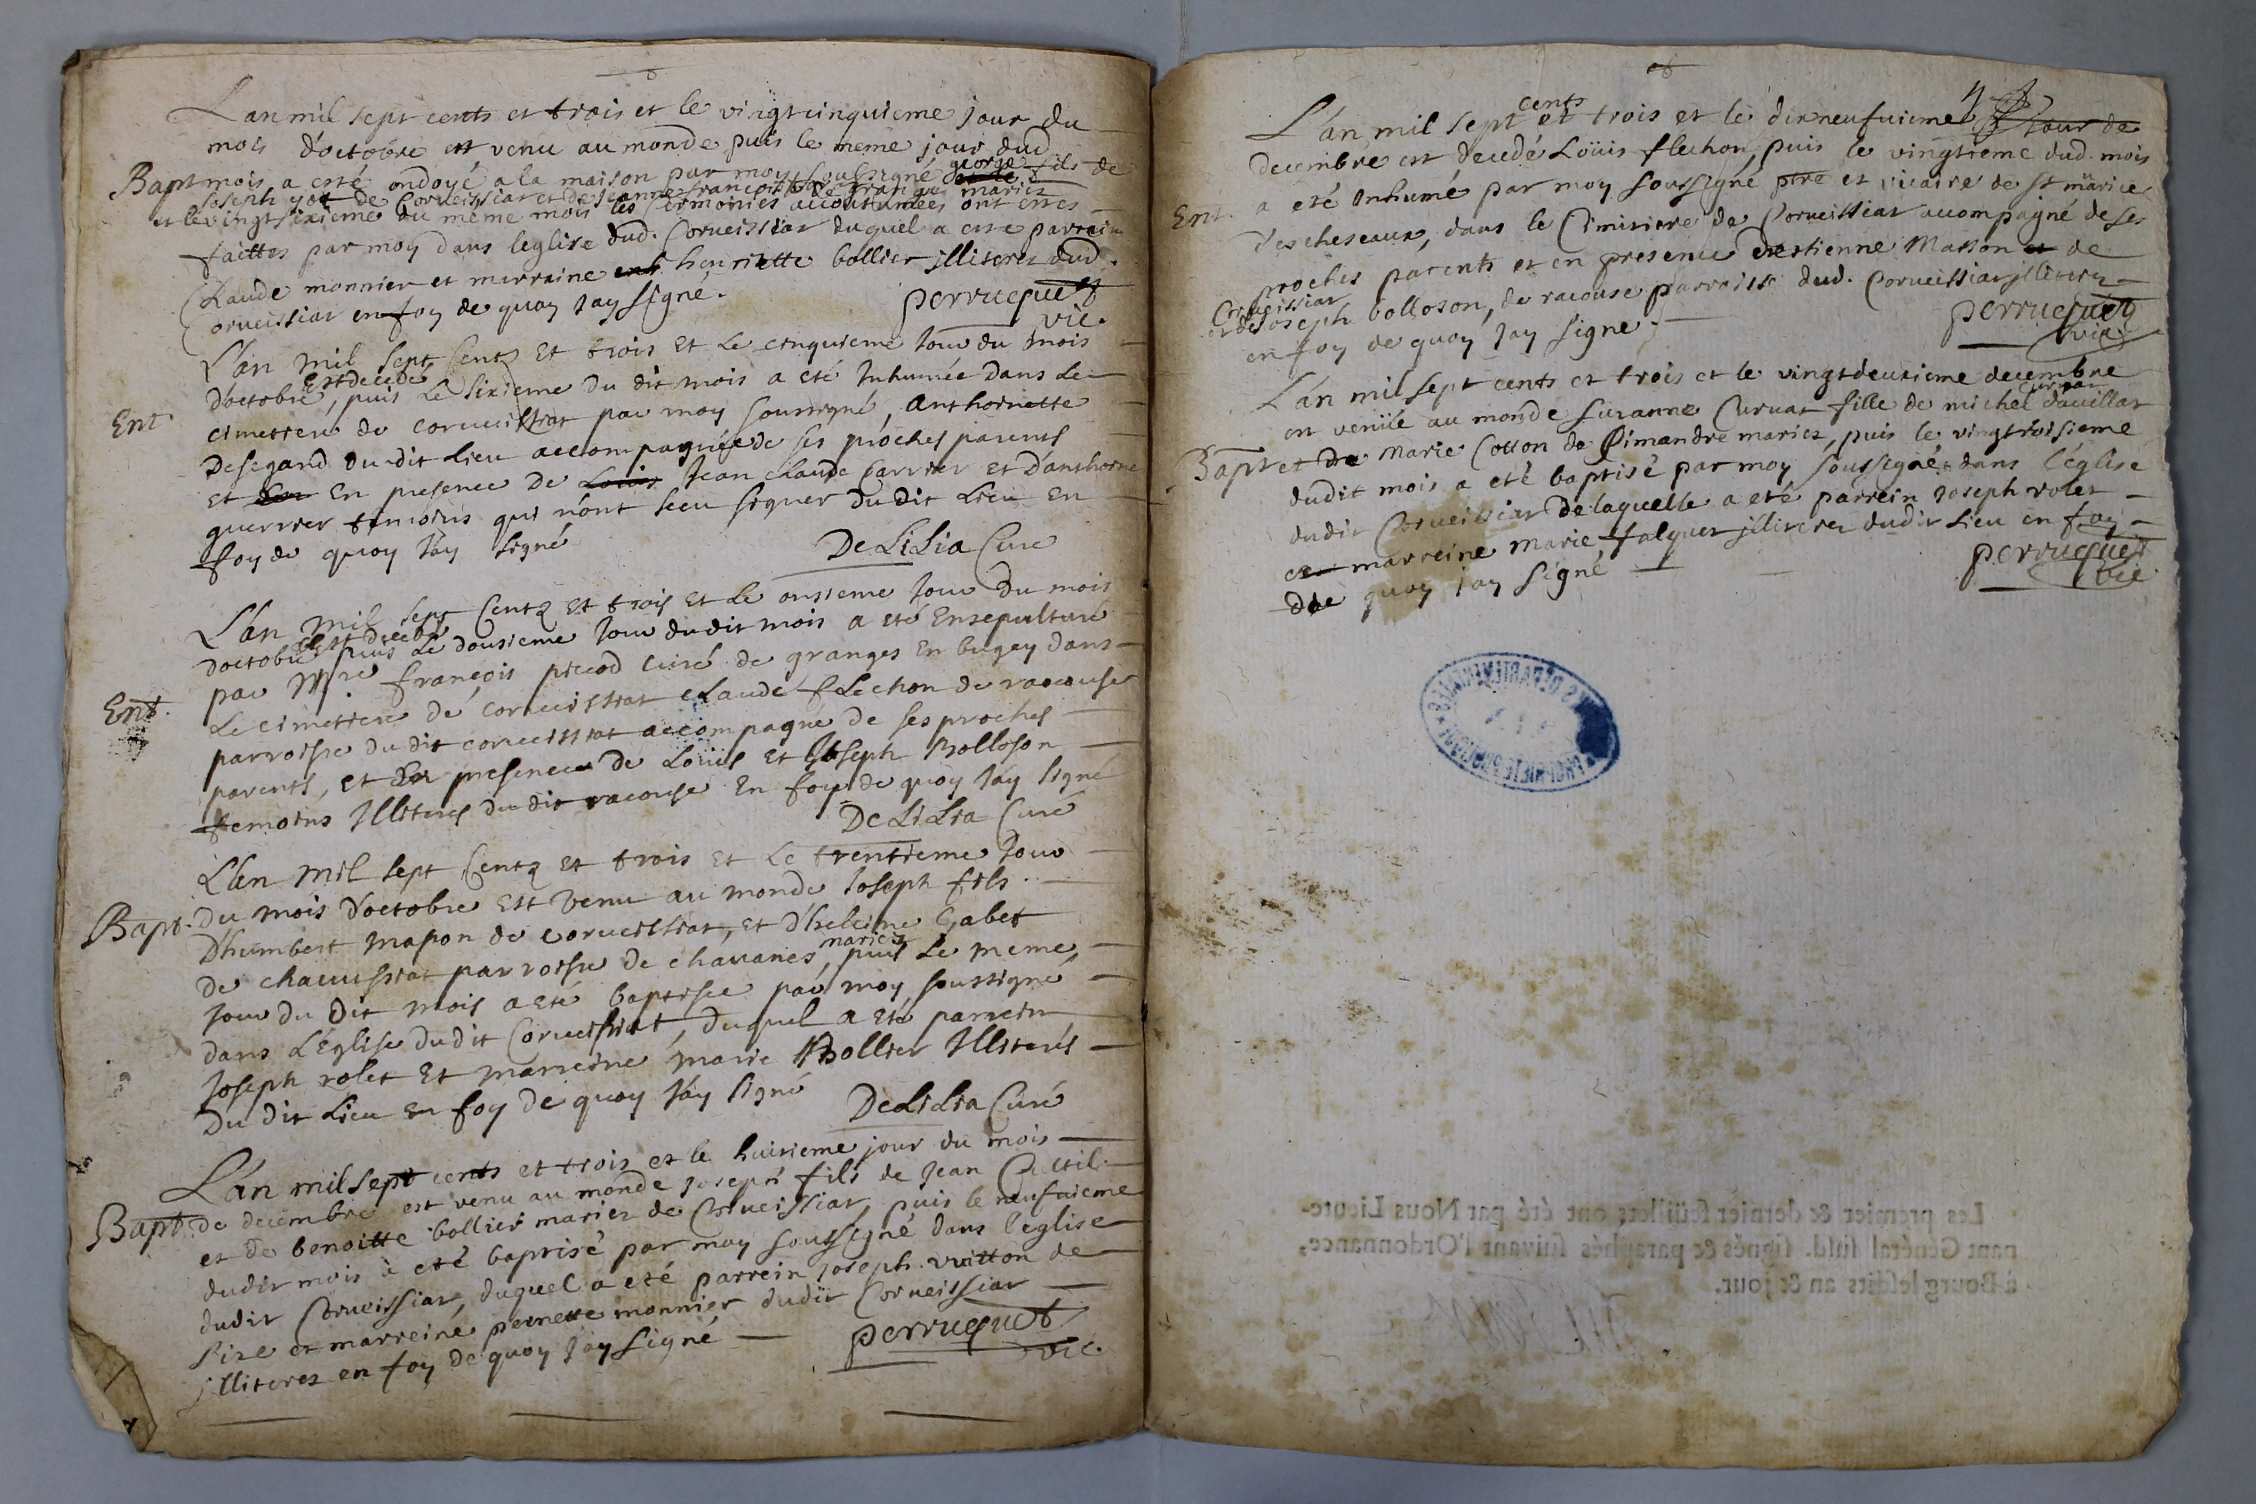 Lan mil sept cents et trois et le vingtcinquieme jour du
mois d'octobre est venu au monde puis le meme jour dud
Bapt mois a esté ondoyé a la maison par moy soussigné george fils de
Joseph got de Corveissiat et de Jeanne francoise mariez
et le vingtsixieme du même mois les ceremonies accoustumées ont estes
faittes par moy dans leglise dud. Corveissiat duquel a esté parrain
Claude monnier et marraine henriette bollier illiterez dud.
Corveissiat en foy de quoy jay signé.
perruquet
vic.
L'an mil sept Centz Et trois Et Le cinquieme Jour du mois
d'octobre, Est decedé puis Le Sixieme Du dit mois a eté Inhumée Dans Le
Ent cimetiere de corveissiat par moy soussigné, anthoinette
Desegand Du dit Lieu accompagnée de ses proches parents
Et En presence De Jean claude Carrier Et D'anthoine
guerrier temoins qui n'ont sceu signer Du dit Lieu En
foy de quoy J'ay signé
DeLiLia Curé
L'an mil sept Centz Et trois Et Le onsieme Jour Du mois
d'octobre Est decedé puis Le dousieme Jour dudit mois a eté Ensepulturé
par Mre françois piccod curé de granges En bugey dans
Ent. Le cimetiere de corveissiat claude flechon de racouse
parroisse du dit corveissiat accompagné de ses proches
parents, et En presence de Loüis Et Joseph Bolloson
temoins Illiterés du dit racouse En foy de quoy J'ay signé
DeLiLia Curé
L'an mil sept Centz Et trois Et Le trentieme Jour
Bapt. Du mois d'octobre Est Venu au monde Joseph fils
D'humbert mapon de corveissiat, Et d'heleine Gabet
De chauissiat parroisse de chavanes, mariez puis Le meme
Jour du Dit mois a eté baptisée par moy soussigné
dans L'Eglise dudit Corveissiat, duquel a eté parrein
Joseph rolet Et marreine marie Bollier Illiterés
Du dit Lieu En foy De quoy J'ay signé
DeLiLia Curé
L'an mil sept cents et trois et le huitieme jour du mois
Bapt. de decembre est venu au monde Joseph fils de Jean Cuttil
et de benoitte bollier mariez de Corveissiat, puis le neufuieme
dudit mois à eté baptisé par moy soussigné dans l'eglise
dudit Corveissiat, duquel a eté parrein Joseph vuitton de
Sire et marreine pernette monnier dudit Corveissiat
jlliterez en foy de quoy jay signé
perruquet
vic.
4
L'an mil sept cents et trois et le dixneufuieme jour de
decembre est decedé Loüis flechon, puis le vingtieme dud. mois
Ent. a eté Inhumé par moy soussigné ptre et vicaire de st mürice
d'escheseaux, dans le Cimitiere de Corveissiat accompagné de ses
proches parents et en presence d'estienne Masson et de
Corveissiat
et de joseph bolloson, de racouse parroisse dud. Corveissiat jlliterez
en foy de quoy jay signé.
perruquet
vic.
L'an mil sept cents et trois et le vingtdeuxieme decembre
est venüe au monde suzanne Curvat fille de michel Curvat d'auillat
Bapt et de Marie Cotton de Simandre mariez, puis le vingttroisieme
dudit mois a eté baptisé par moy soussigné dans l'église
dudit Corveissiat De laquelle a eté parrein Joseph rolet
et marreine Marie falquet jlliterez dudit Lieu en foy
de quoy jay signé
perruquet
vic.
Les premier & dernier feüillets ont été par Nous Lieute-
nant Général susd. signés & paraphés suivant l'Ordonnance,
à Bourg lesdits an & jour.